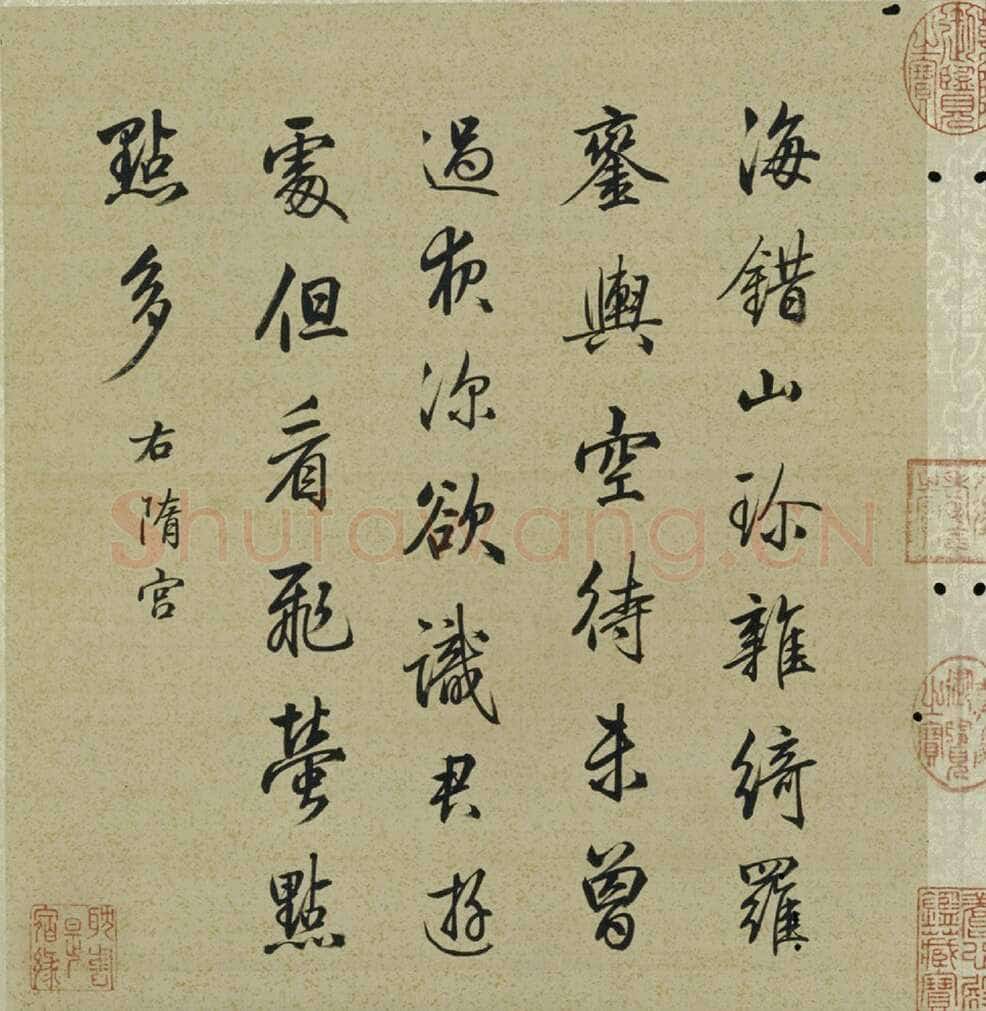 海錯山珍雜綺羅
鑾輿空待未曾
過夜深欲識君遊
處但看飛螢點
點多
右隋宮
Shufakang.CN